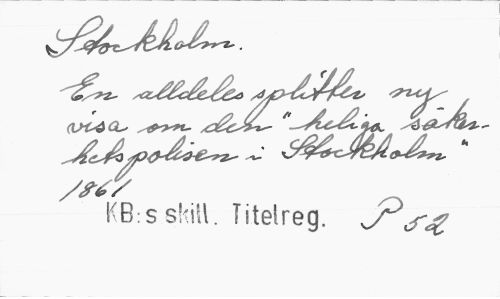 Stockholm.
En alldeles splitter ny
visa om den "heliga säker-
hetspolisen i Stockholm"
1861
KB:s skill. Titelreg. P 52